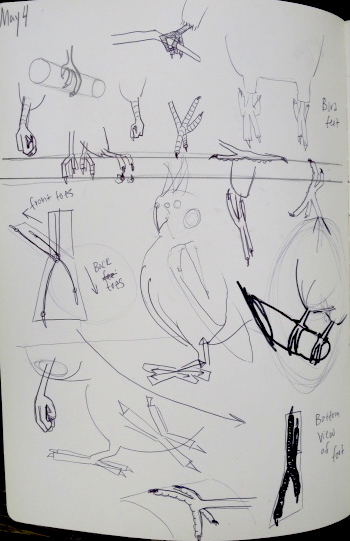 May 4
Bird
feet
front toes
Back
toes
Bottom
View
of
foot